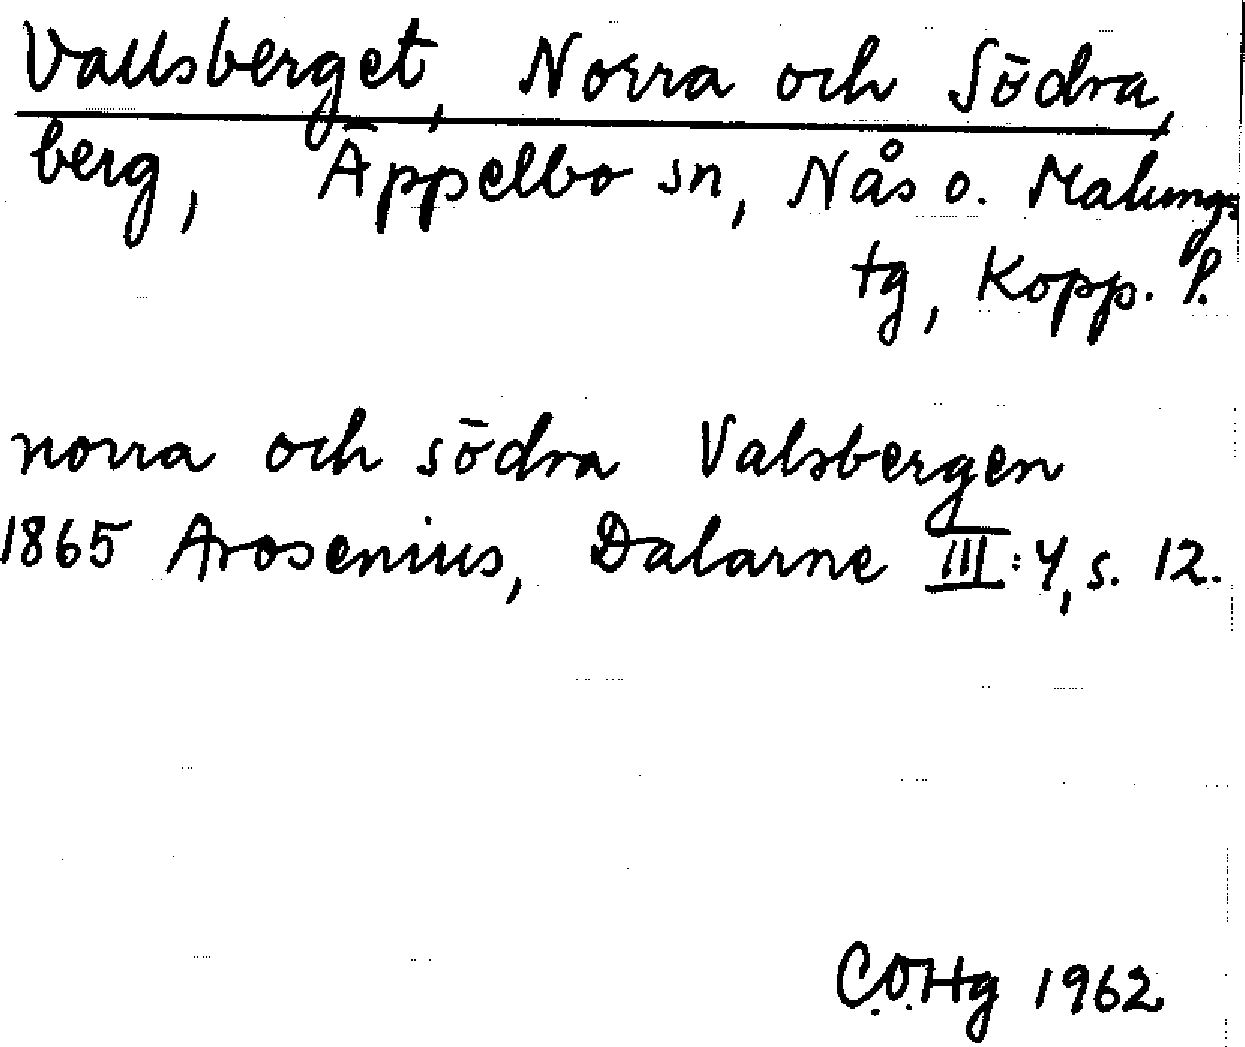 Vallsberget, Norra och Södra,
berg, Äppelbo sn, Nås o. Malungs
tg, Kopp. l.
norra och södra Valsbergen
1865 Arosenius, Dalarne III:4, s. 12.
C.O.Hg 1962